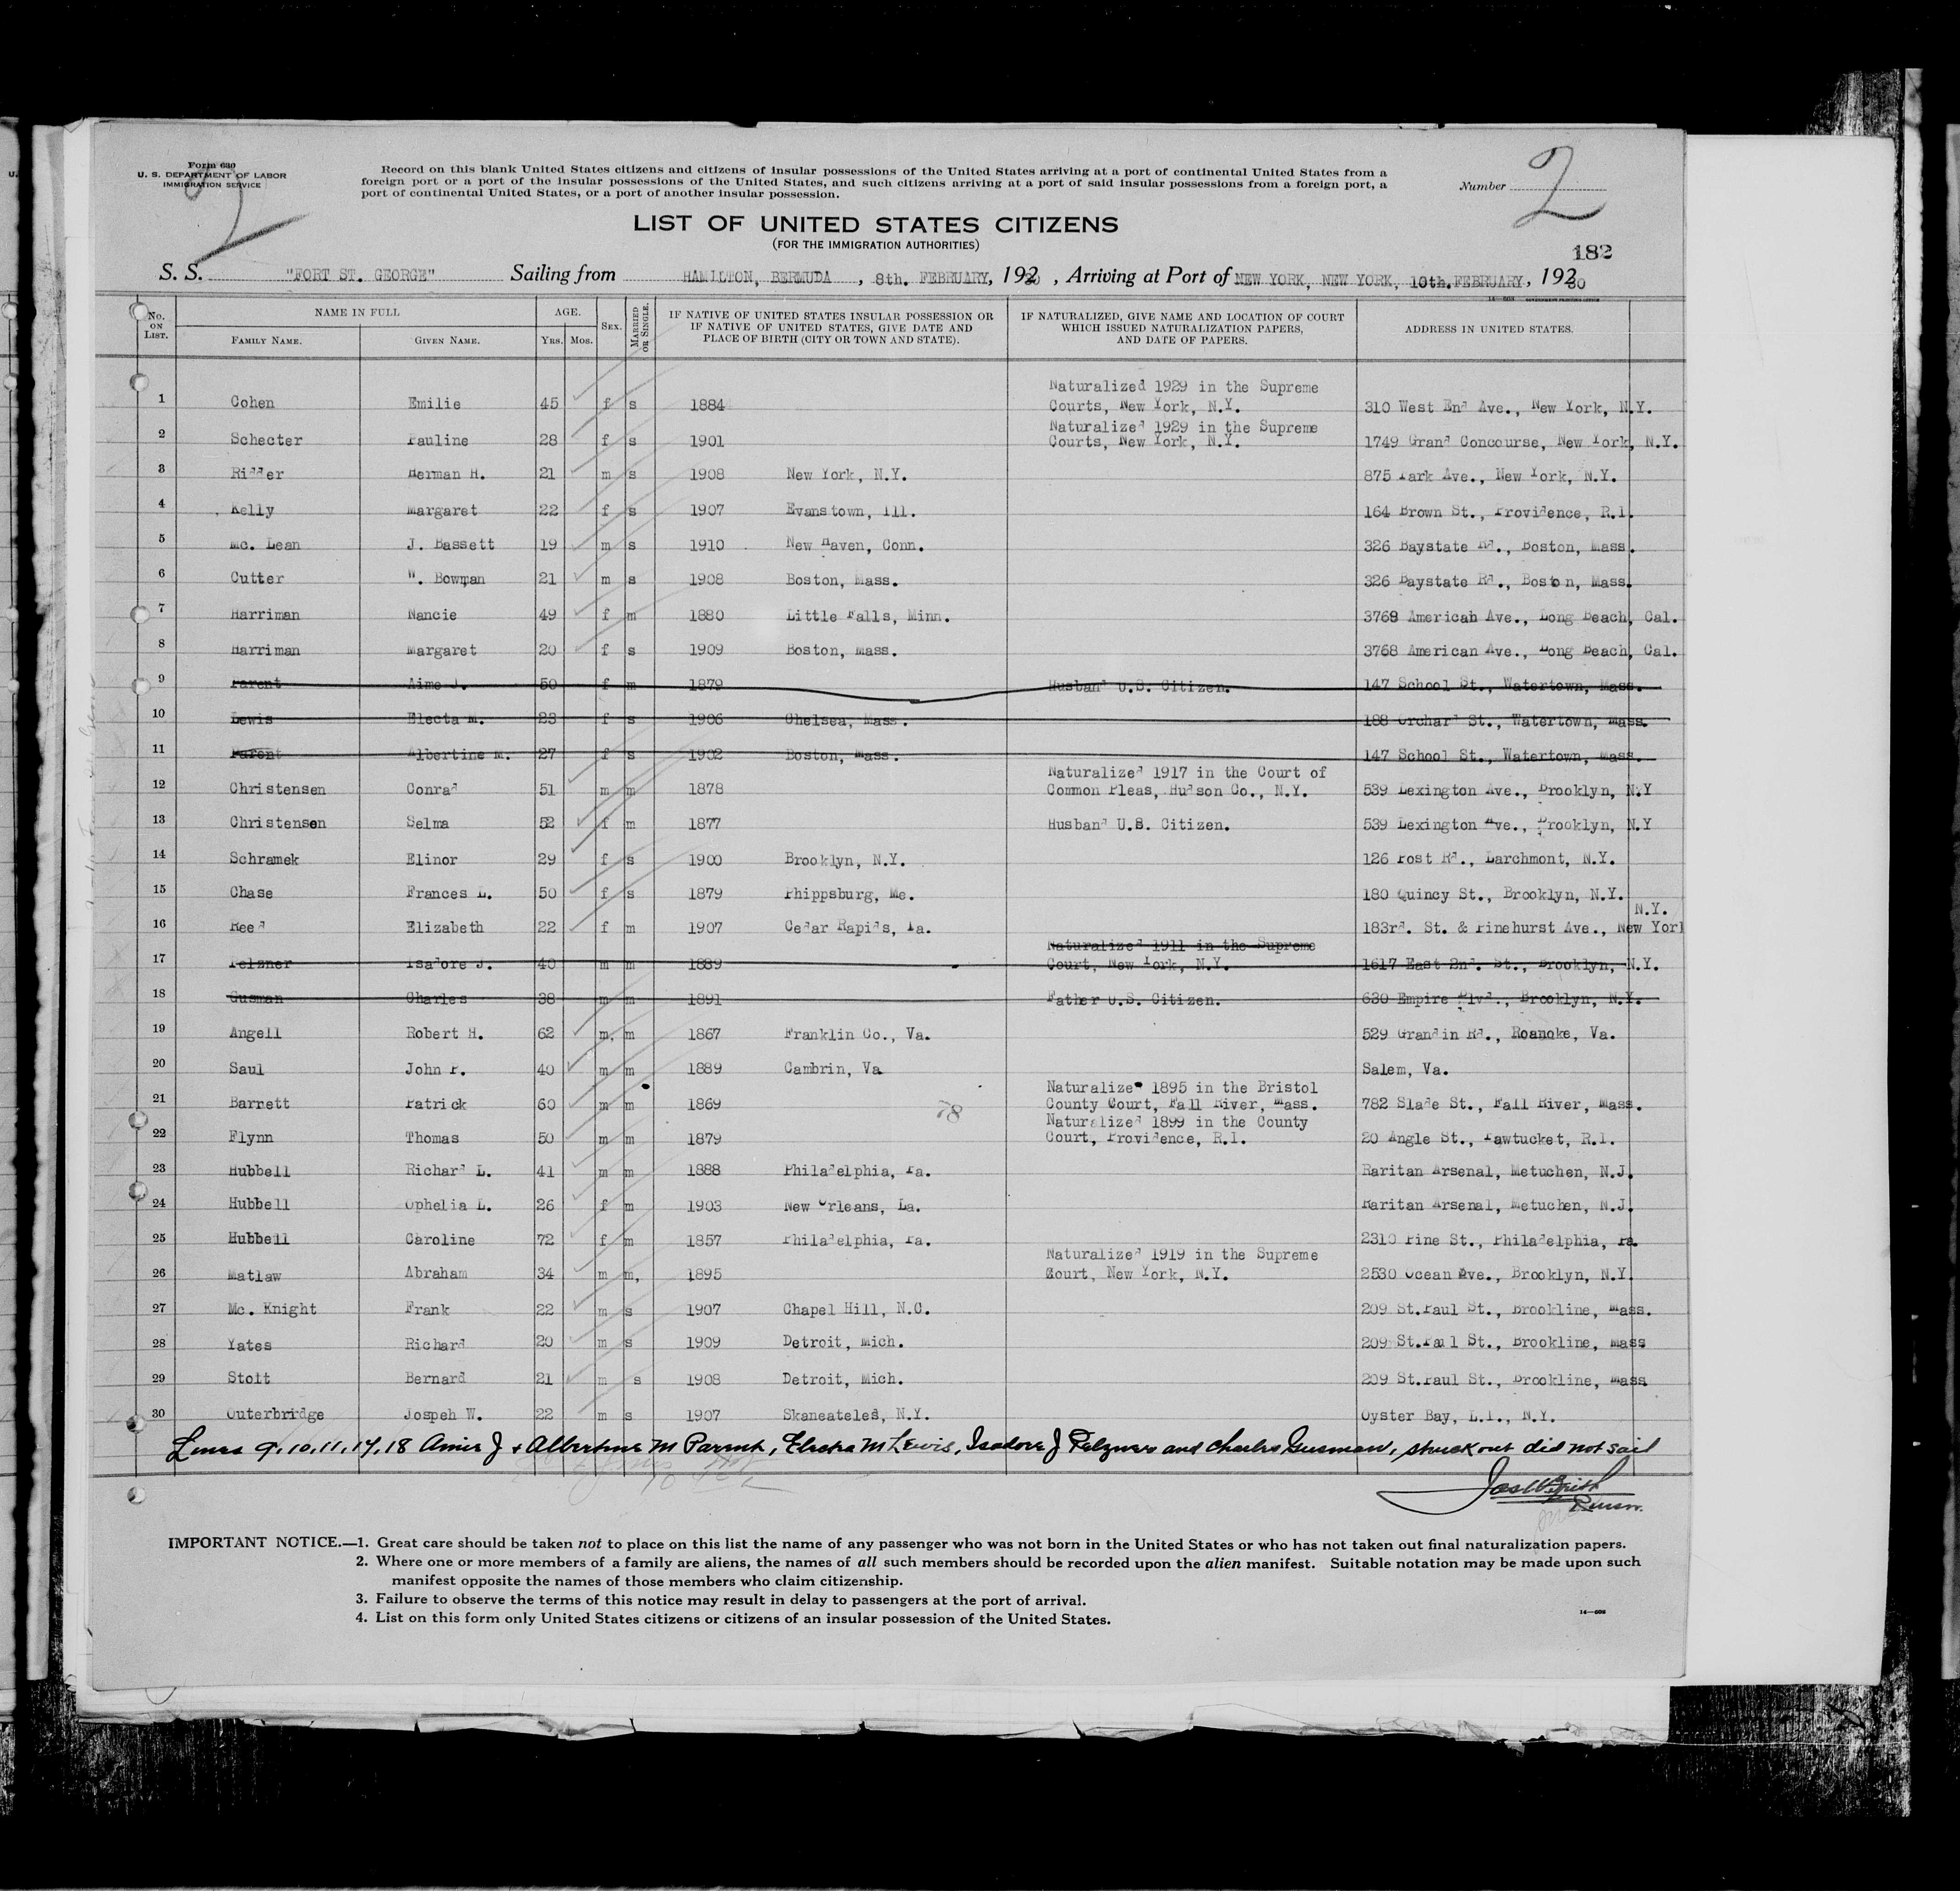 Form 630
U. S. DEPARTMENT OF LABOR
IMMIGRATION SERVICE
2
Record on this blank United States citizens and citizens of insular possessions of the United States arriving at a port of continental United States from a
foreign port or a port of the insular possessions of the United States, and such citizens arriving at a port of said insular possessions from a foreign port, a
port of continental United States, or a port of another insular possession.
Number 2
LIST OF UNITED STATES CITIZENS
(FOR THE IMMIGRATION AUTHORITIES)
182
S. S. "FORT ST. GEORGE" Sailing from HAMILTON, BERMUDA, 8th. FEBRUARY, 19230, Arriving at Port of NEW YORK, NEW YORK, 10th. FEBRUARY, 19230
No. ON LIST. NAME IN FULL FAMILY NAME. GIVEN NAME. AGE. YRS. MOS. SEX. MARRIED OR SINGLE. IF NATIVE OF UNITED STATES INSULAR POSSESSION OR IF NATIVE OF UNITED STATES, GIVE DATE AND PLACE OF BIRTH (CITY OR TOWN AND STATE). IF NATURALIZED, GIVE NAME AND LOCATION OF COURT WHICH ISSUED NATURALIZATION PAPERS, AND DATE OF PAPERS. ADDRESS IN UNITED STATES.
1 Cohen Emilie 45 f s 1884 Naturalized 1929 in the Supreme Courts, New York, N.Y. 310 West End Ave., New York, N.Y.
2 Schecter Pauline 28 f s 1901 Naturalized 1929 in the Supreme Courts, New York, N.Y. 1749 Grand Concourse, New York, N.Y.
3 Ridder Herman H. 21 m s 1908 New York, N.Y. 875 Park Ave., New York, N.Y.
4 Kelly Margaret 22 f s 1907 Evanstown, Ill. 164 Brown St., Providence, R.I.
5 Mc. Lean J. Bassett 19 m s 1910 New Haven, Conn. 326 Baystate Rd., Boston, Mass.
6 Cutter W. Bowman 21 m s 1908 Boston, Mass. 326 Baystate Rd., Boston, Mass.
7 Harriman Nancie 49 f m 1880 Little Falls, Minn. 3768 American Ave., Long Beach, Cal.
8 Harriman Margaret 20 f s 1909 Boston, Mass. 3768 American Ave., Long Beach, Cal.
9 Parent Aime J. 50 f m 1879 Husband U.S. Citizen. 147 School St., Watertown, Mass.
10 Lewis Electa M. 23 f s 1906 Chelsea, Mass. 188 Orchard St., Watertown, Mass.
11 Parent Albertine M. 27 f s 1902 Boston, Mass. 147 School St., Watertown, Mass.
12 Christensen Conrad 51 m m 1878 Naturalized 1917 in the Court of Common Pleas, Hudson Co., N.Y. 539 Lexington Ave., Brooklyn, N.Y
13 Christensen Selma 52 f m 1877 Husband U.S. Citizen. 539 Lexington Ave., Brooklyn, N.Y
14 Schramek Elinor 29 f s 1900 Brooklyn, N.Y. 126 Post Rd., Larchmont, N.Y.
15 Chase Frances L. 50 f s 1879 Phippsburg, Me. 180 Quincy St., Brooklyn, N.Y.
16 Reed Elizabeth 22 f m 1907 Cedar Rapids, Ia. 183rd. St. & Pinehurst Ave., New York N.Y.
17 Pelzner Isadore J. 40 m m 1889 Naturalized 1911 in the Supreme Court, New York, N.Y. 1617 East 2nd. St., Brooklyn, N.Y.
18 Gusman Charles 38 m m 1891 Father U.S. Citizen. 630 Empire Blvd., Brooklyn, N.Y.
19 Angell Robert H. 62 m. m 1867 Franklin Co., Va. 529 Grandin Rd., Roanoke, Va.
20 Saul John P. 40 m m 1889 Cambrin, Va Salem, Va.
21 Barnett Patrick 60 m m 1869 78 Naturalized 1895 in the Bristol County Court, Fall River, Mass. 782 Slade St., Fall River, Mass.
22 Flynn Thomas 50 m m 1879 Naturalized 1899 in the County Court, Providence, R.I. 20 Angle St., Pawtucket, R.I.
23 Hubbell Richard L. 41 m m 1888 Philadelphia, Pa. Raritan Arsenal, Metuchen, N.J.
24 Hubbell Ophelia L. 26 f m 1903 New Orleans, La. Raritan Arsenal, Metuchen, N.J.
25 Hubbell Caroline 72 f m 1857 Philadelphia, Pa. 2310 Pine St., Philadelphia, Pa.
26 Matlaw Abraham 34 m m, 1895 Naturalized 1919 in the Supreme Court, New York, N.Y. 2530 Ocean Ave., Brooklyn, N.Y.
27 Mc. Knight Frank 22 m s 1907 Chapel Hill, N.C. 209 St.Paul St., Brookline, Mass.
28 Yates Richard 20 m s 1909 Detroit, Mich. 209 St.Paul St., Brookline, Mass
29 Stolt Bernard 21 m s 1908 Detroit, Mich. 209 St.Paul St., Brookline, Mass
30 Outerbridge Jospeh W. 22 m s 1907 Skaneateles, N.Y. Oyster Bay, L.I., N.Y.
Lines 9, 10, 11, 17, 18 Aimee J + Albertine M Parent, Electra M Lewis, Isadore J Pelzners and Charles Gusman, struck out did not sail
Purser.
IMPORTANT NOTICE.—1. Great care should be taken not to place on this list the name of any passenger who was not born in the United States or who has not taken out final naturalization papers.
2. Where one or more members of a family are aliens, the names of all such members should be recorded upon the alien manifest. Suitable notation may be made upon such
manifest opposite the names of those members who claim citizenship.
3. Failure to observe the terms of this notice may result in delay to passengers at the port of arrival.
4. List on this form only United States citizens or citizens of an insular possession of the United States.